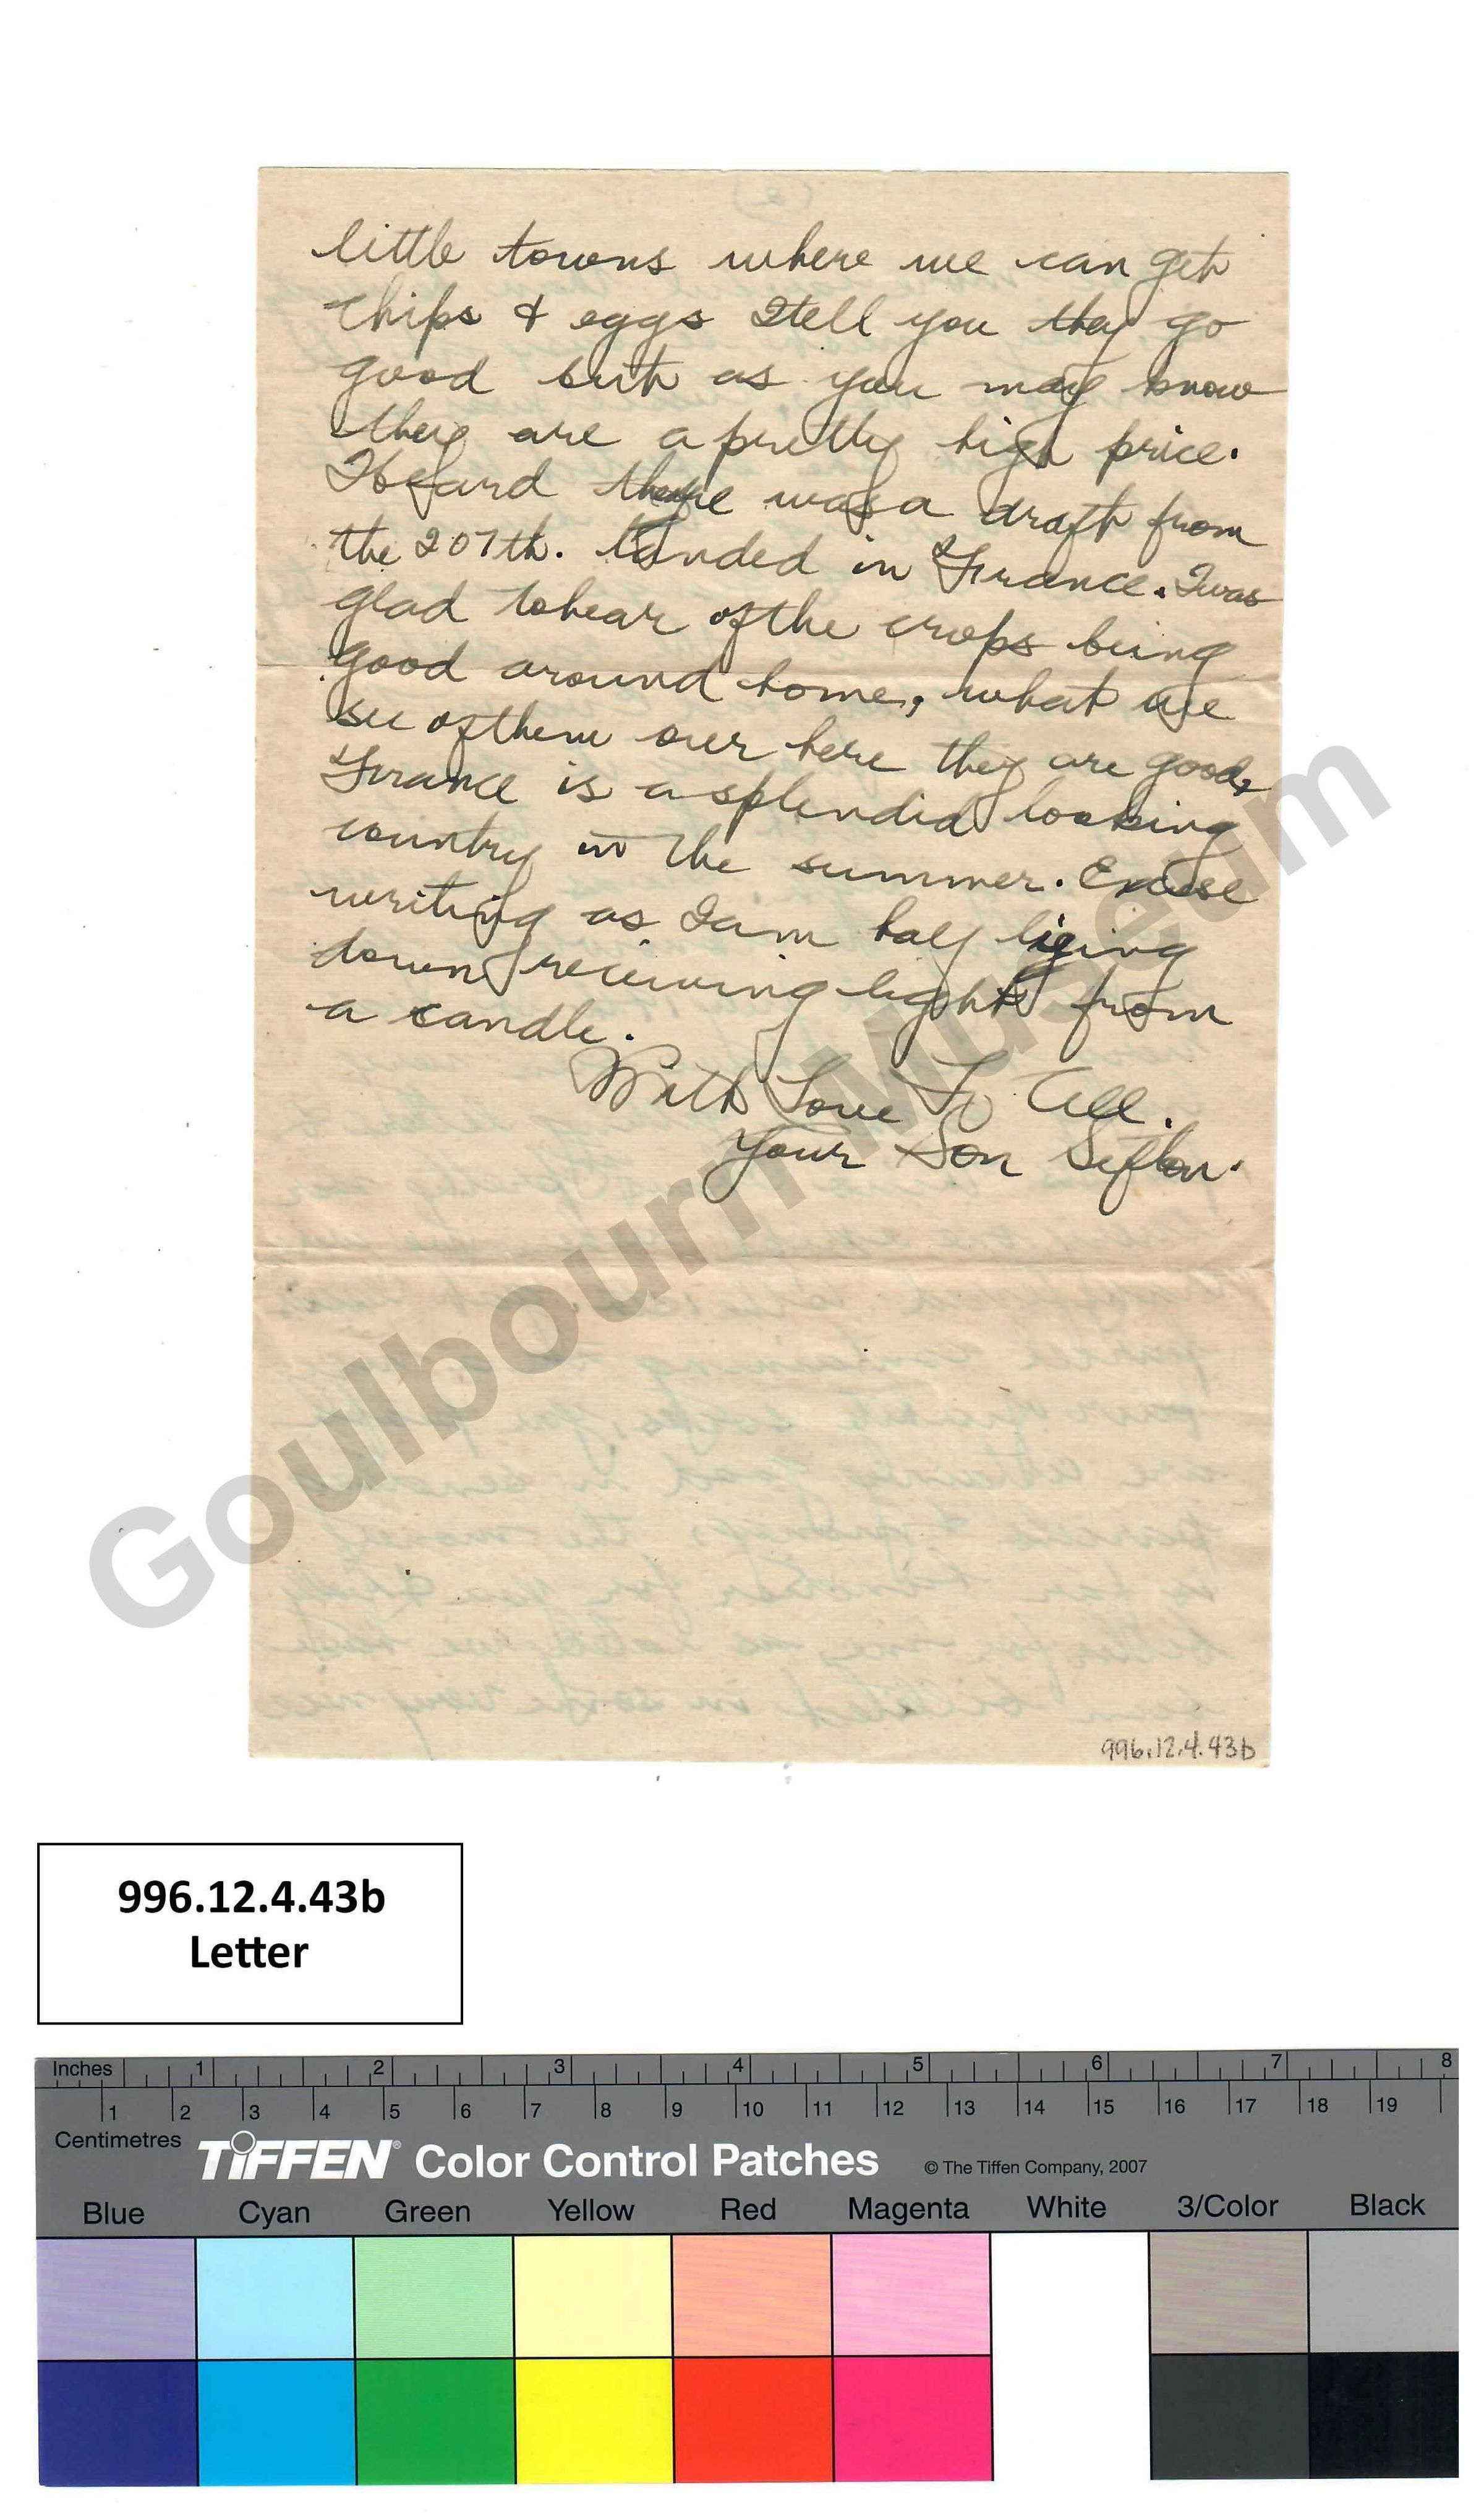 little towns where we can get
chips & eggs I tell you they go
good but as you may know
they are a pretty high price.
I heard there was a draft from
the 207th. landed in France. I was
glad to hear of the crops being
good around home, what we
see of them over here they are good,
France is a splendid looking
country in the summer. Excuse
writing as I am half liging
down receiving light from
a candle.
With Love To All.
Your Son Sefton.
996.12.4.43b
Goulbourn Museum
996.12.4.43b
Letter
Inches 1 2 3 4 5 6 7 8
1 2 3 4 5 6 7 8 9 10 11 12 13 14 15 16 17 18 19
Centimetres
TIFFEN® Color Control Patches © The Tiffen Company, 2007
Blue Cyan Green Yellow Red Magenta White 3/Color Black